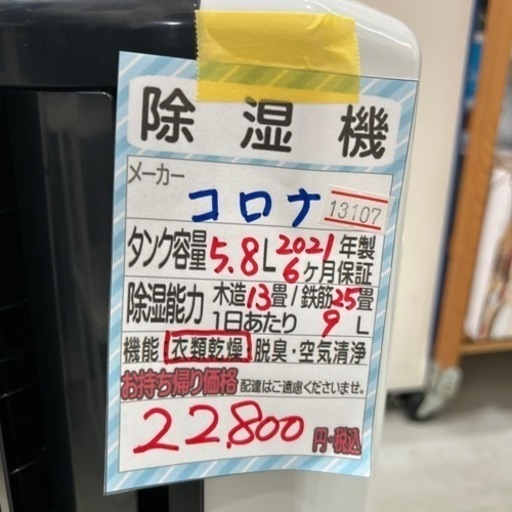 除湿機
メーカー
コロナ 13107
タンク容量 5.8L 2021年製
6ヶ月保証
除湿能力 木造13畳/鉄筋25畳
1日あたり 9 L
機能 衣類乾燥 脱臭・空気清浄
お持ち帰り価格 配達はご遠慮くださいませ。
22,800 円・税込